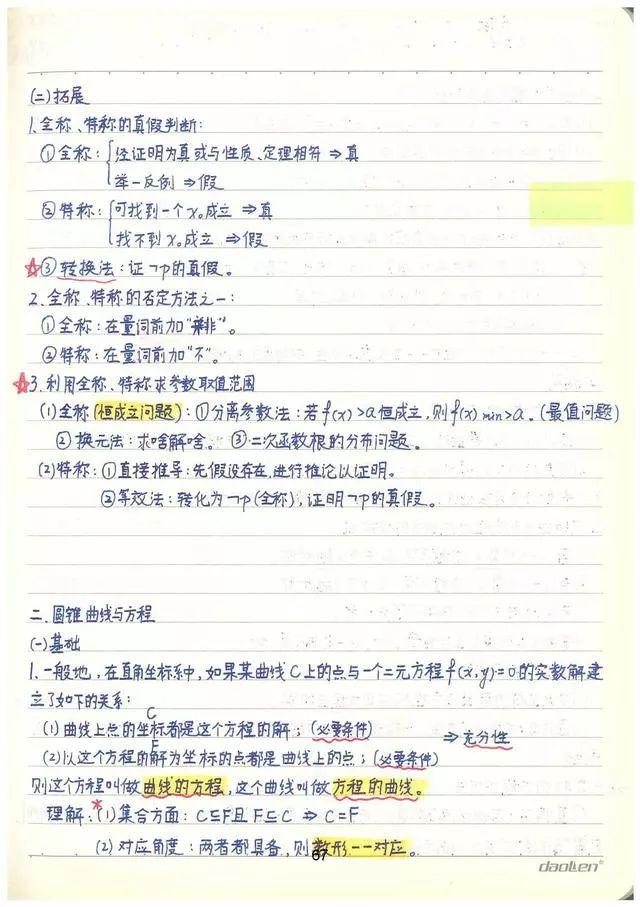 (二)拓展
1.全称、特称的真假判断:
①全称:{经证明为真或与性质、定理相符⇒真
举一反例⇒假
②特称:{可找到一个x₀成立⇒真
找不到x₀成立⇒假
☆③转换法:证¬p的真假。
2.全称、特称的否定方法之一:
①全称:在量词前加“并非”。
②特称:在量词前加“不”。
☆3.利用全称、特称求参数取值范围
(1)全称(恒成立问题):①分离参数法:若f(x)>a恒成立,则f(x)min>a。(最值问题)
②换元法:求啥解啥。③二次函数根的分布问题。
(2)特称:①直接推导:先假设存在,进行推论以证明。
②等效法:转化为¬p(全称),证明¬p的真假。
二.圆锥曲线与方程
(一)基础
1.一般地,在直角坐标系中,如果某曲线C上的点与一个二元方程f(x,y)=0的实数解建
立了如下的关系:
C
(1)曲线上点的坐标都是这个方程的解;(必要条件)⇒充分性
F
(2)以这个方程的解为坐标的点都是曲线上的点;(必要条件)
则这个方程叫做曲线的方程,这个曲线叫做方程的曲线。
理解:*(1)集合方面:C⊆F且F⊆C⇒C=F
(2)对应角度:两者都具备,则数形一一对应。
67
daolien®